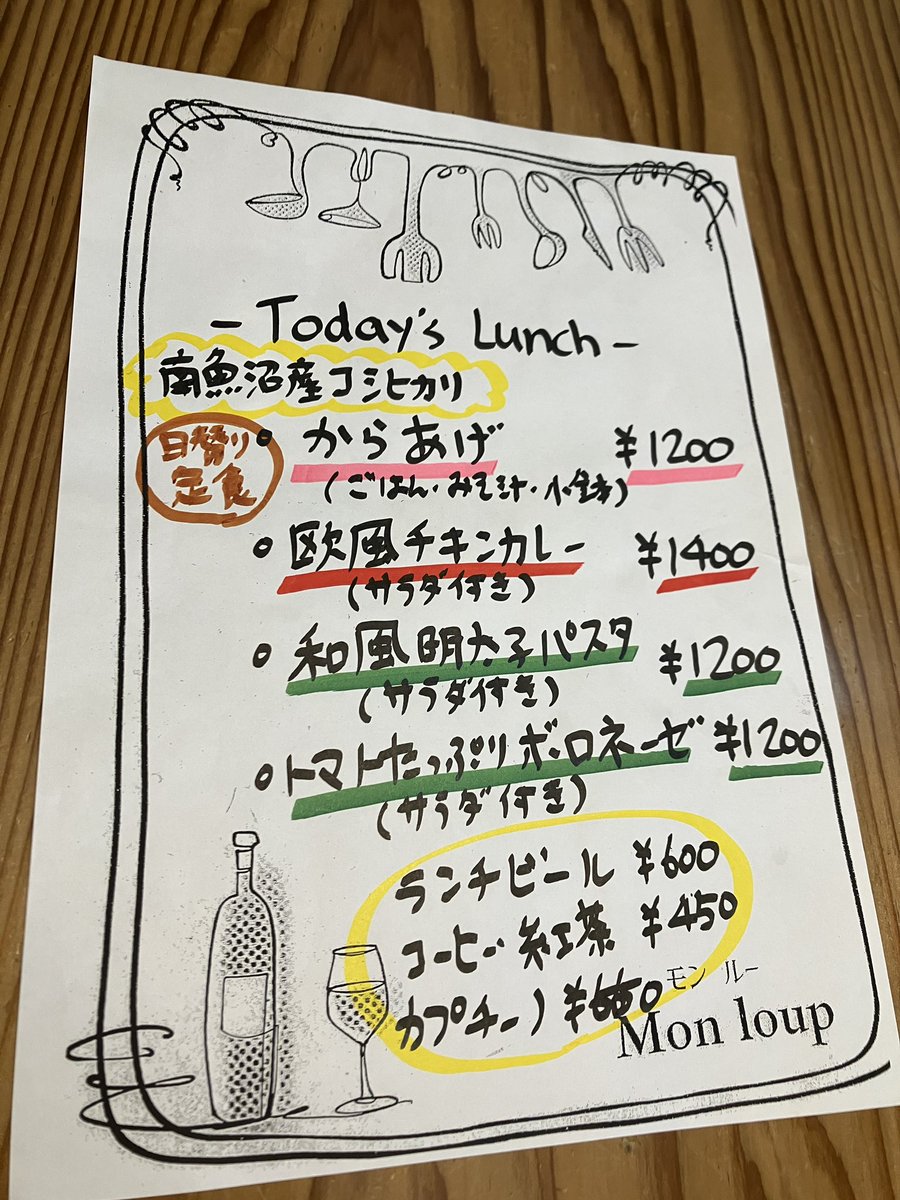 - Today's Lunch -
南魚沼産コシヒカリ
日替り
定食
• からあげ ¥1200
(ごはん・みそ汁・小鉢)
• 欧風チキンカレー ¥1400
(サラダ付き)
• 和風明太子パスタ ¥1200
(サラダ付き)
• トマトたっぷりボロネーゼ ¥1200
(サラダ付き)
ランチビール ¥600
コーヒー・紅茶 ¥450
カプチーノ
モン ルー
Mon loup